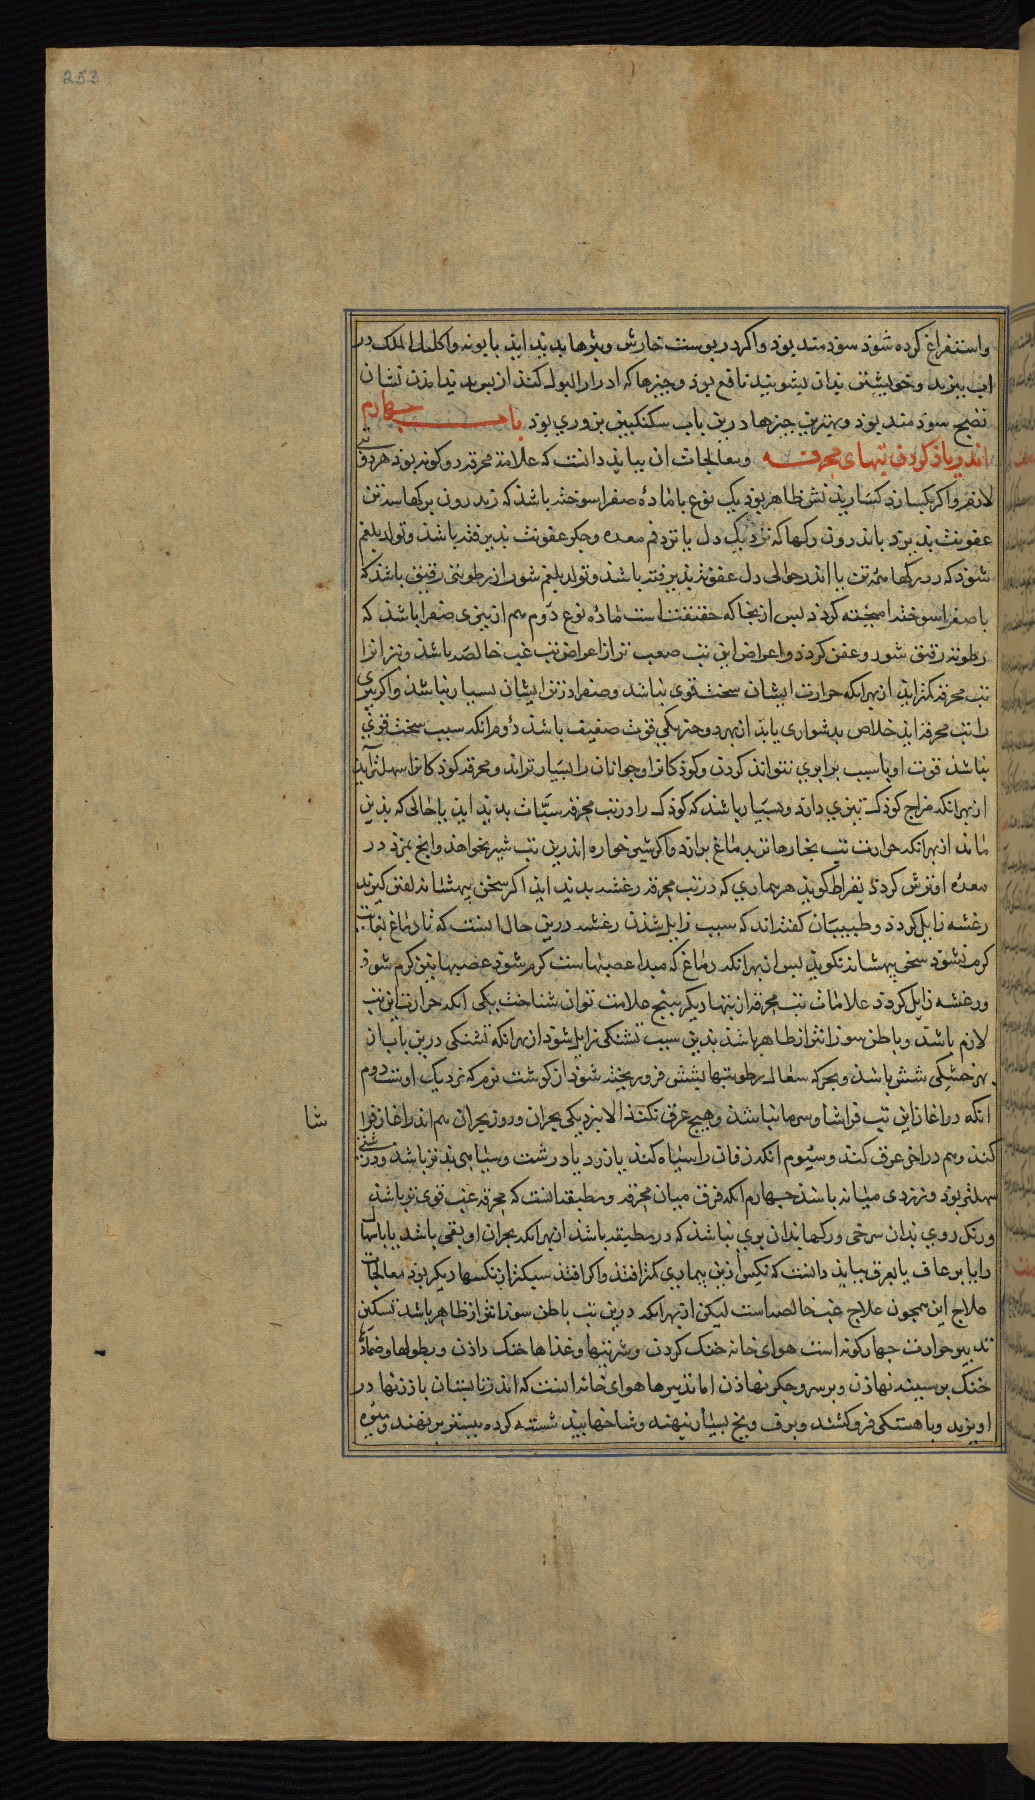 253
واستفراغ کرده شوذ سوذ مند بوذ واکر در پوست خارش وبثرها پدید اید بابونه واکلیل الملک در
اب بپزند وخویشتن بذان بشویند نافع بوذ وچیزها که ادرار البول کند از پس پدید امذن نشان
نضج سوذ مند بوذ وبهترین چیزها درین باب سکنکبین بزوری بوذ باب چهارم
اندر یاذ کردن تبهای محرقه ومعالجات ان بباید دانست که علامة محرقه دو کونه بوذ هر دو تبی
لازم واکر یکسان
عفونت پذیرد یا اندرون رکها که نزدیک دل یا نزد فم معده وجکر عفونت پذیرفته باشذ وتولد بلغم
شوذ که در رکها همه تن یا اندر حوالی دل عفونة پذیرفته باشذ وتولد بلغم شور از رطوبتی رقیق باشذ که
با صفرا سوخته امیخته کردد پس از ینجا که حقیقت است ماده نوع دوم هم از تیزی صفرا باشذ که
رطوبة رقیق شور وعفن کردد واعراض این تب صعب تر از اعراض تب غب خالصه باشذ
تب محرقه کمتر اید از بهر انکه حرارت ایشان سخت قوی نباشذ وصفرا در تن ایشان بسیار نباشذ واکر پیری
را تب محرقه اید خلاص بدشواری یابد از بهر دو چیز یکی قوت ضعیف باشذ دوم انکه سبب سخت قوی
نباشذ قوت او با سبب برابری نتواند کردن وکوذکانرا وجوانان را بسیار تر اید ومحرقه کوذکانرا سهلتر آید
از بهر انکه مزاج کوذک تیزی دارد وبسیار باشذ که کوذک را در تب محرقه سبات پدید اید یا حالی که بذین
ماند از بهر انکه حرارت تب بخارها تر بدماغ براید واکر شیر خواره اندرین تب شیر نخواهد وانچ بمزد در
معده او ترش کردد بقراط کوید هر بیماری که در تب محرقه رعشه پدید اید اکر سخن بیهشانه کفتن کیرد
رعشه زایل کردد وطبیبان کفته اند که سبب زایل شذن رعشه درین حال انست که تا دماغ بغایت
کرم نشوذ سخن بیهشانه نکوید پس از بهر انکه دماغ که مبدا عصبهاست کرم شوذ عصبها نیز کرم شوذ
ورعشه زایل کردد علامات تب محرقه از تبها دیکر بپنج علامت توان شناخت یکی انکه حرارت این تب
لازم باشذ وباطن سوزانتر از ظاهر باشذ بذین سبب تشنکی زایل شوذ از بهر انکه تشنکی درین باب از
بهر خشکی شش باشذ وبهر که سعال رطوبتها بشش فرو ریخته شوذ از کوشت نرم که نزدیک اوست دوم
انکه در اغاز این تب فراشا وسرما نباشذ وهیچ عرق نکند الا بنزدیکی بحران ودر روز بحران هم اندر اغاز فرا
شا
کند وهم در اخر عرق کند وسیوم انکه زفان را سیاه کند یا زرد یا درشت وسیاهی بذتر باشذ ودرشتی
سهلتر بوذ وزردی میانه باشذ چهارم انکه فرق میان محرقه ومطبقه انست که محرقه غب قوی تر باشذ
ورنک روی بذان سرخی ورکها بذان پری نباشذ که در مطبقه باشذ از بهر انکه بحران او بقی باشذ یا باسهال
را یا برعاف یا بعرق بباید دانست که نکس ازین بیماری کمتر افتذ واکر افتذ سبکتر از نکسها دیکر بوذ معالجات
علاج این همچون علاج غب خالصه است لیکن از بهر انکه درین تب باطن سوزانتر از ظاهر باشذ تسکین
تدبیر حرارت چهار کونه است هوای خانه خنک کردن وشربتها وغذاها خنک داذن وبطولها وضماد
خنک بر سینه نهاذن وبر سر وجکر نهاذن اما تدبیرها هوای خانه انست که اندر تابستان باذزنها در
اویزند وباهستکی فرو کشند وبرف ویخ بسیار نهند وشاخها بید شسته کرده بستر بر نهند ومیوه